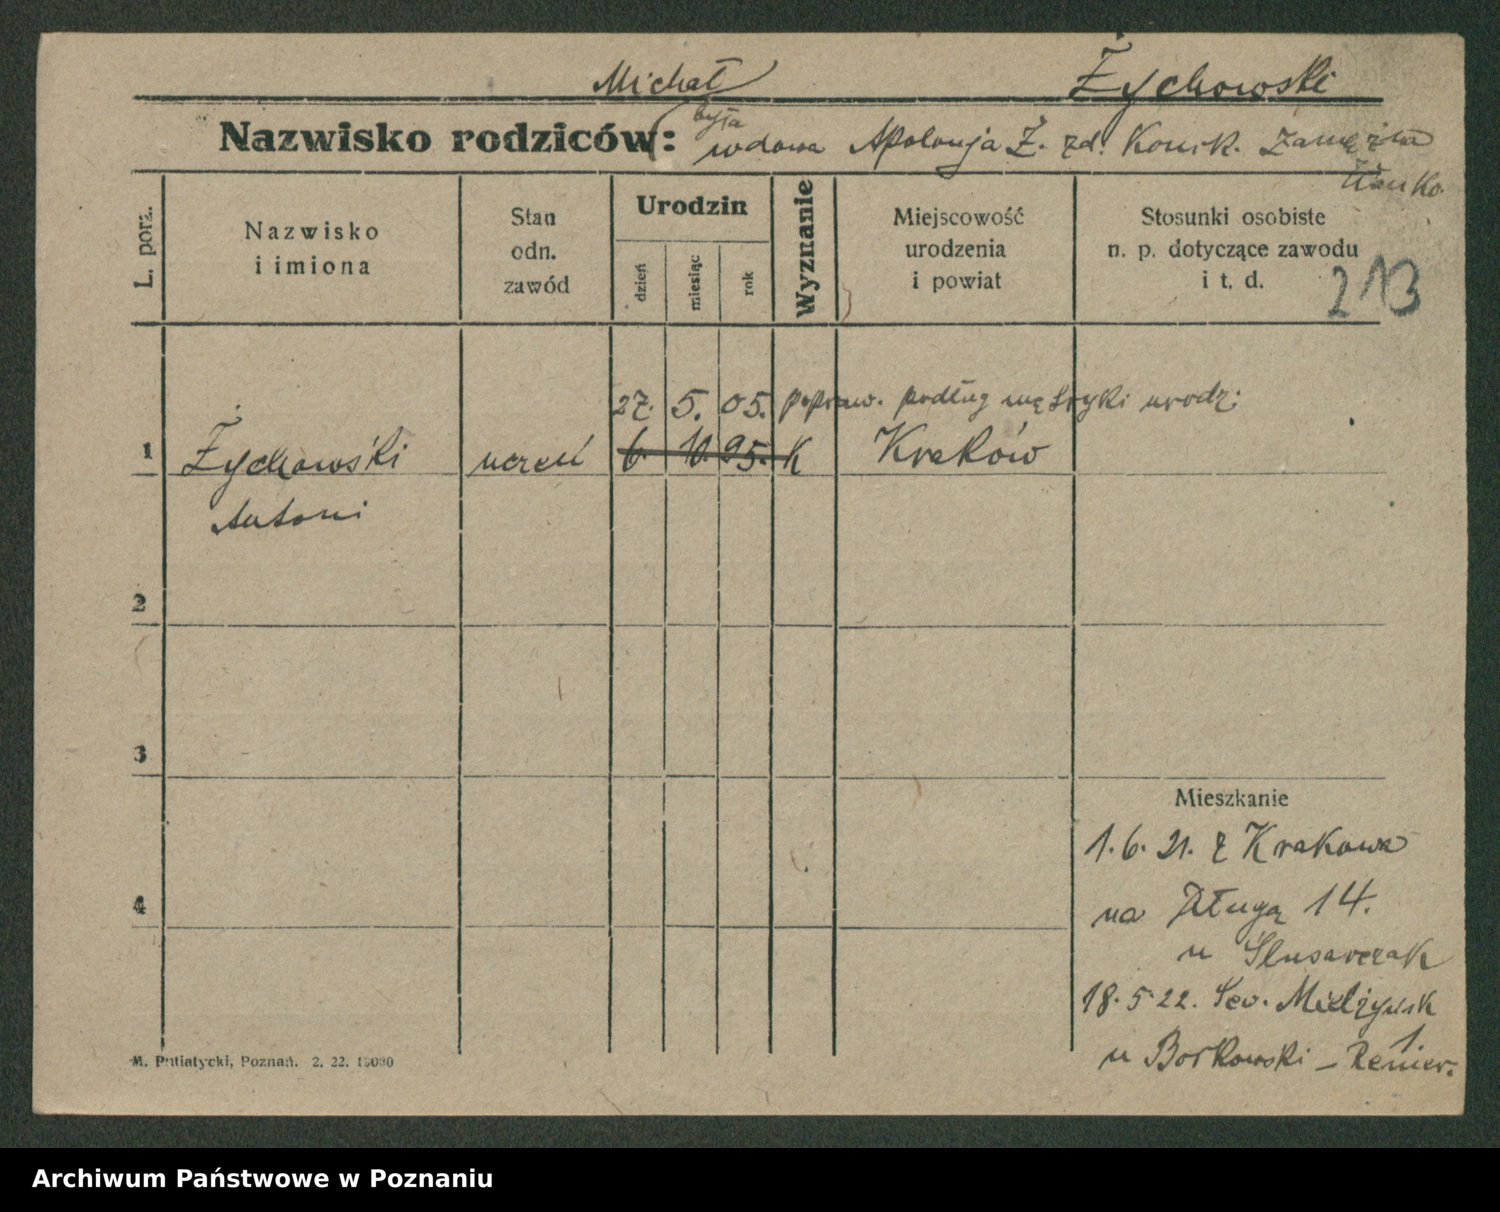 Michał Żychowski
Nazwisko rodziców: była wdowa Apolonja Ż. zd. Konik. zamężna
L. porz.
Nazwisko i imiona
Stan odn. zawód
Urodzin
dzień miesiąc rok
Wyznanie
Miejscowość urodzenia i powiat
Stosunki osobiste n. p. dotyczące zawodu i t. d.
213
27. 5. 05. popraw. podług metryki urodz.
1 Żychowski uczeń 6. 10. 05. K Kraków
Antoni
2
3
Mieszkanie
1. 6. 21. z Krakowa
4
na Długą 14.
u Ślusarczak
18. 5 22. Sew. Mielżyńsk
1.
u Borkowski –
M. Putiatycki, Poznań. 2. 22. 15000
Archiwum Państwowe w Poznaniu